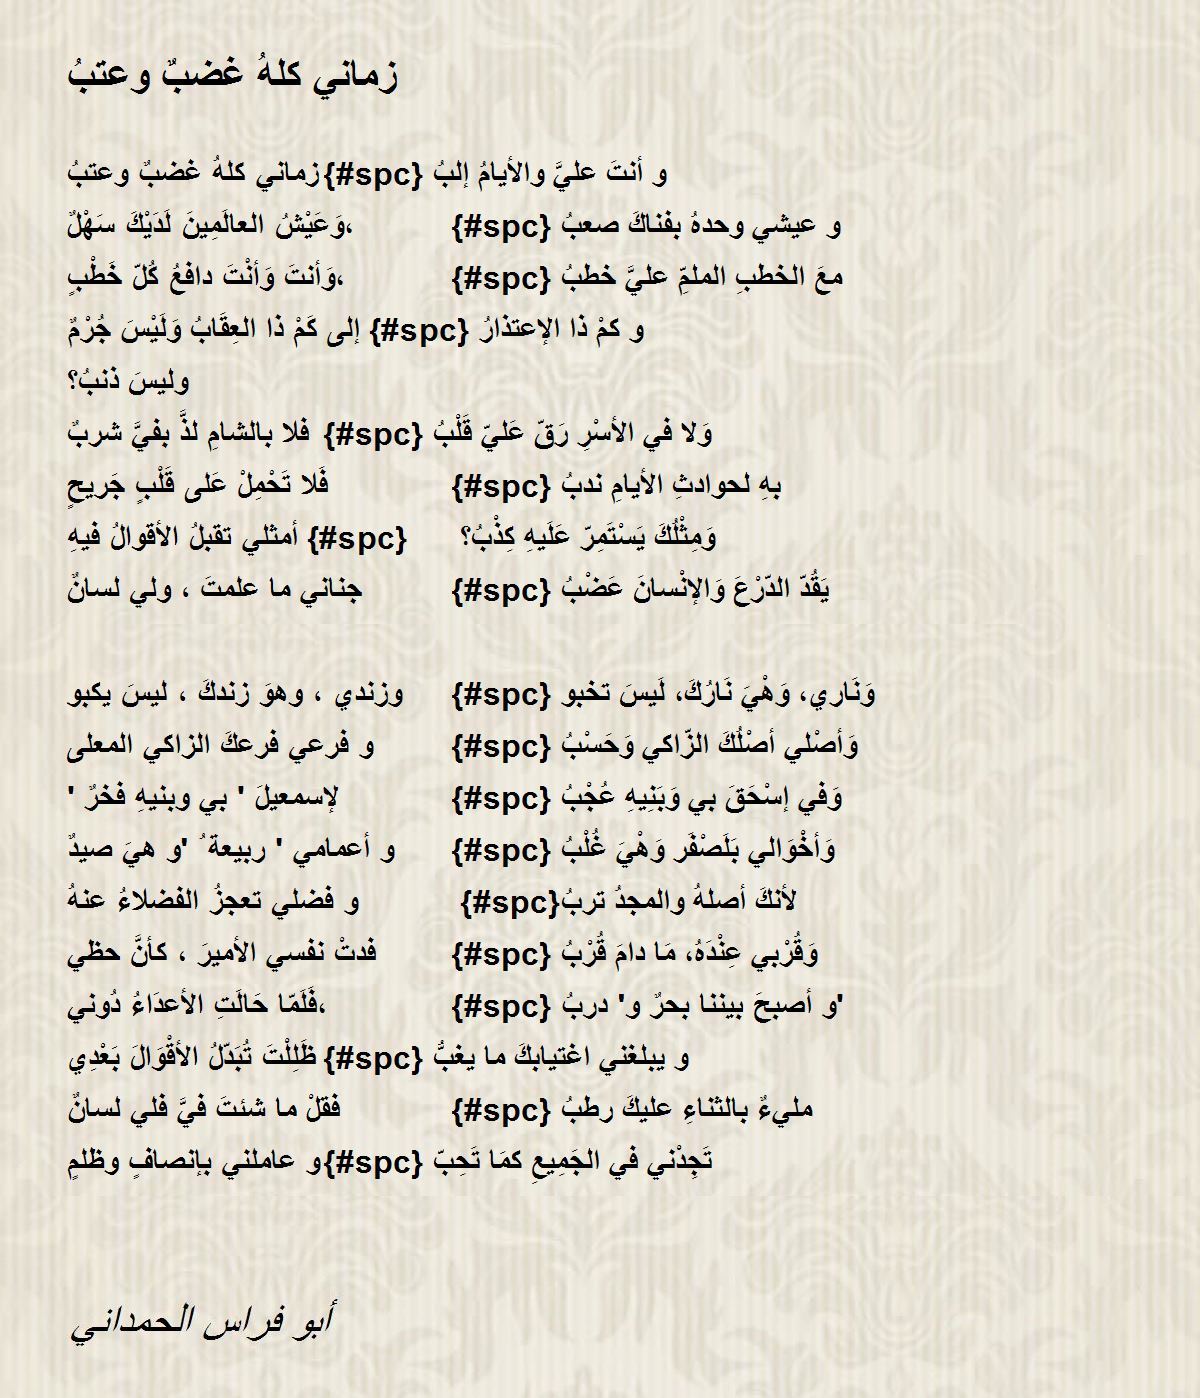 زماني كلهُ غضبٌ وعتبُ
زماني كلهُ غضبٌ وعتبُ {#spc} و أنتَ عليَّ والأيامُ إلبُ
وَعَيْشُ العالَمِينَ لَدَيْكَ سَهْلٌ، {#spc} و عيشي وحدهُ بفناكَ صعبُ
وَأنتَ وَأنْتَ دافعُ كُلّ خَطْبٍ، {#spc} معَ الخطبِ الملمِّ عليَّ خطبُ
إلى كَمْ ذا العِقَابُ وَلَيْسَ جُرْمٌ {#spc} و كمْ ذا الإعتذارُ
وليسَ ذنبُ؟
فلا بالشامِ لذَّ بفيَّ شربٌ {#spc} وَلا في الأسْرِ رَقّ عَليّ قَلْبُ
فَلا تَحْمِلْ عَلى قَلْبٍ جَريحٍ {#spc} بهِ لحوادثِ الأيامِ ندبُ
أمثلي تقبلُ الأقوالُ فيهِ {#spc} وَمِثْلُكَ يَسْتَمِرّ عَلَيهِ كِذْبُ؟
جناني ما علمتَ ، ولي لسانٌ {#spc} يَقُدّ الدّرْعَ وَالإنْسانَ عَضْبُ
وزندي ، وهوَ زندكَ ، ليسَ يكبو {#spc} وَنَاري، وَهْيَ نَارُكَ، لَيسَ تخبو
و فرعي فرعكَ الزاكي المعلى {#spc} وَأصْلي أصْلُكَ الزّاكي وَحَسْبُ
' لإسمعيلَ ' بي وبنيهِ فخرٌ {#spc} وَفي إسْحَقَ بي وَبَنِيهِ عُجْبُ
و أعمامي ' ربيعة ُ 'و هيَ صيدٌ {#spc} وَأخْوَالي بَلَصْفَر وَهْيَ غُلْبُ
و فضلي تعجزُ الفضلاءُ عنهُ {#spc} لأنكَ أصلهُ والمجدُ تربُ
فدتْ نفسي الأميرَ ، كأنَّ حظي {#spc} وَقُرْبي عِنْدَهُ، مَا دامَ قُرْبُ
فَلَمّا حَالَتِ الأعدَاءُ دُوني، {#spc} و أصبحَ بيننا بحرٌ و' دربُ'
ظَلِلْتَ تُبَدّلُ الأقْوَالَ بَعْدِي {#spc} و يبلغني اغتيابكَ ما يغبُّ
فقلْ ما شئتَ فيَّ فلي لسانٌ {#spc} مليءٌ بالثناءِ عليكَ رطبُ
و عاملني بإنصافٍ وظلمٍ {#spc} تَجِدْني في الجَمِيعِ كمَا تَحِبّ
أبو فراس الحمداني